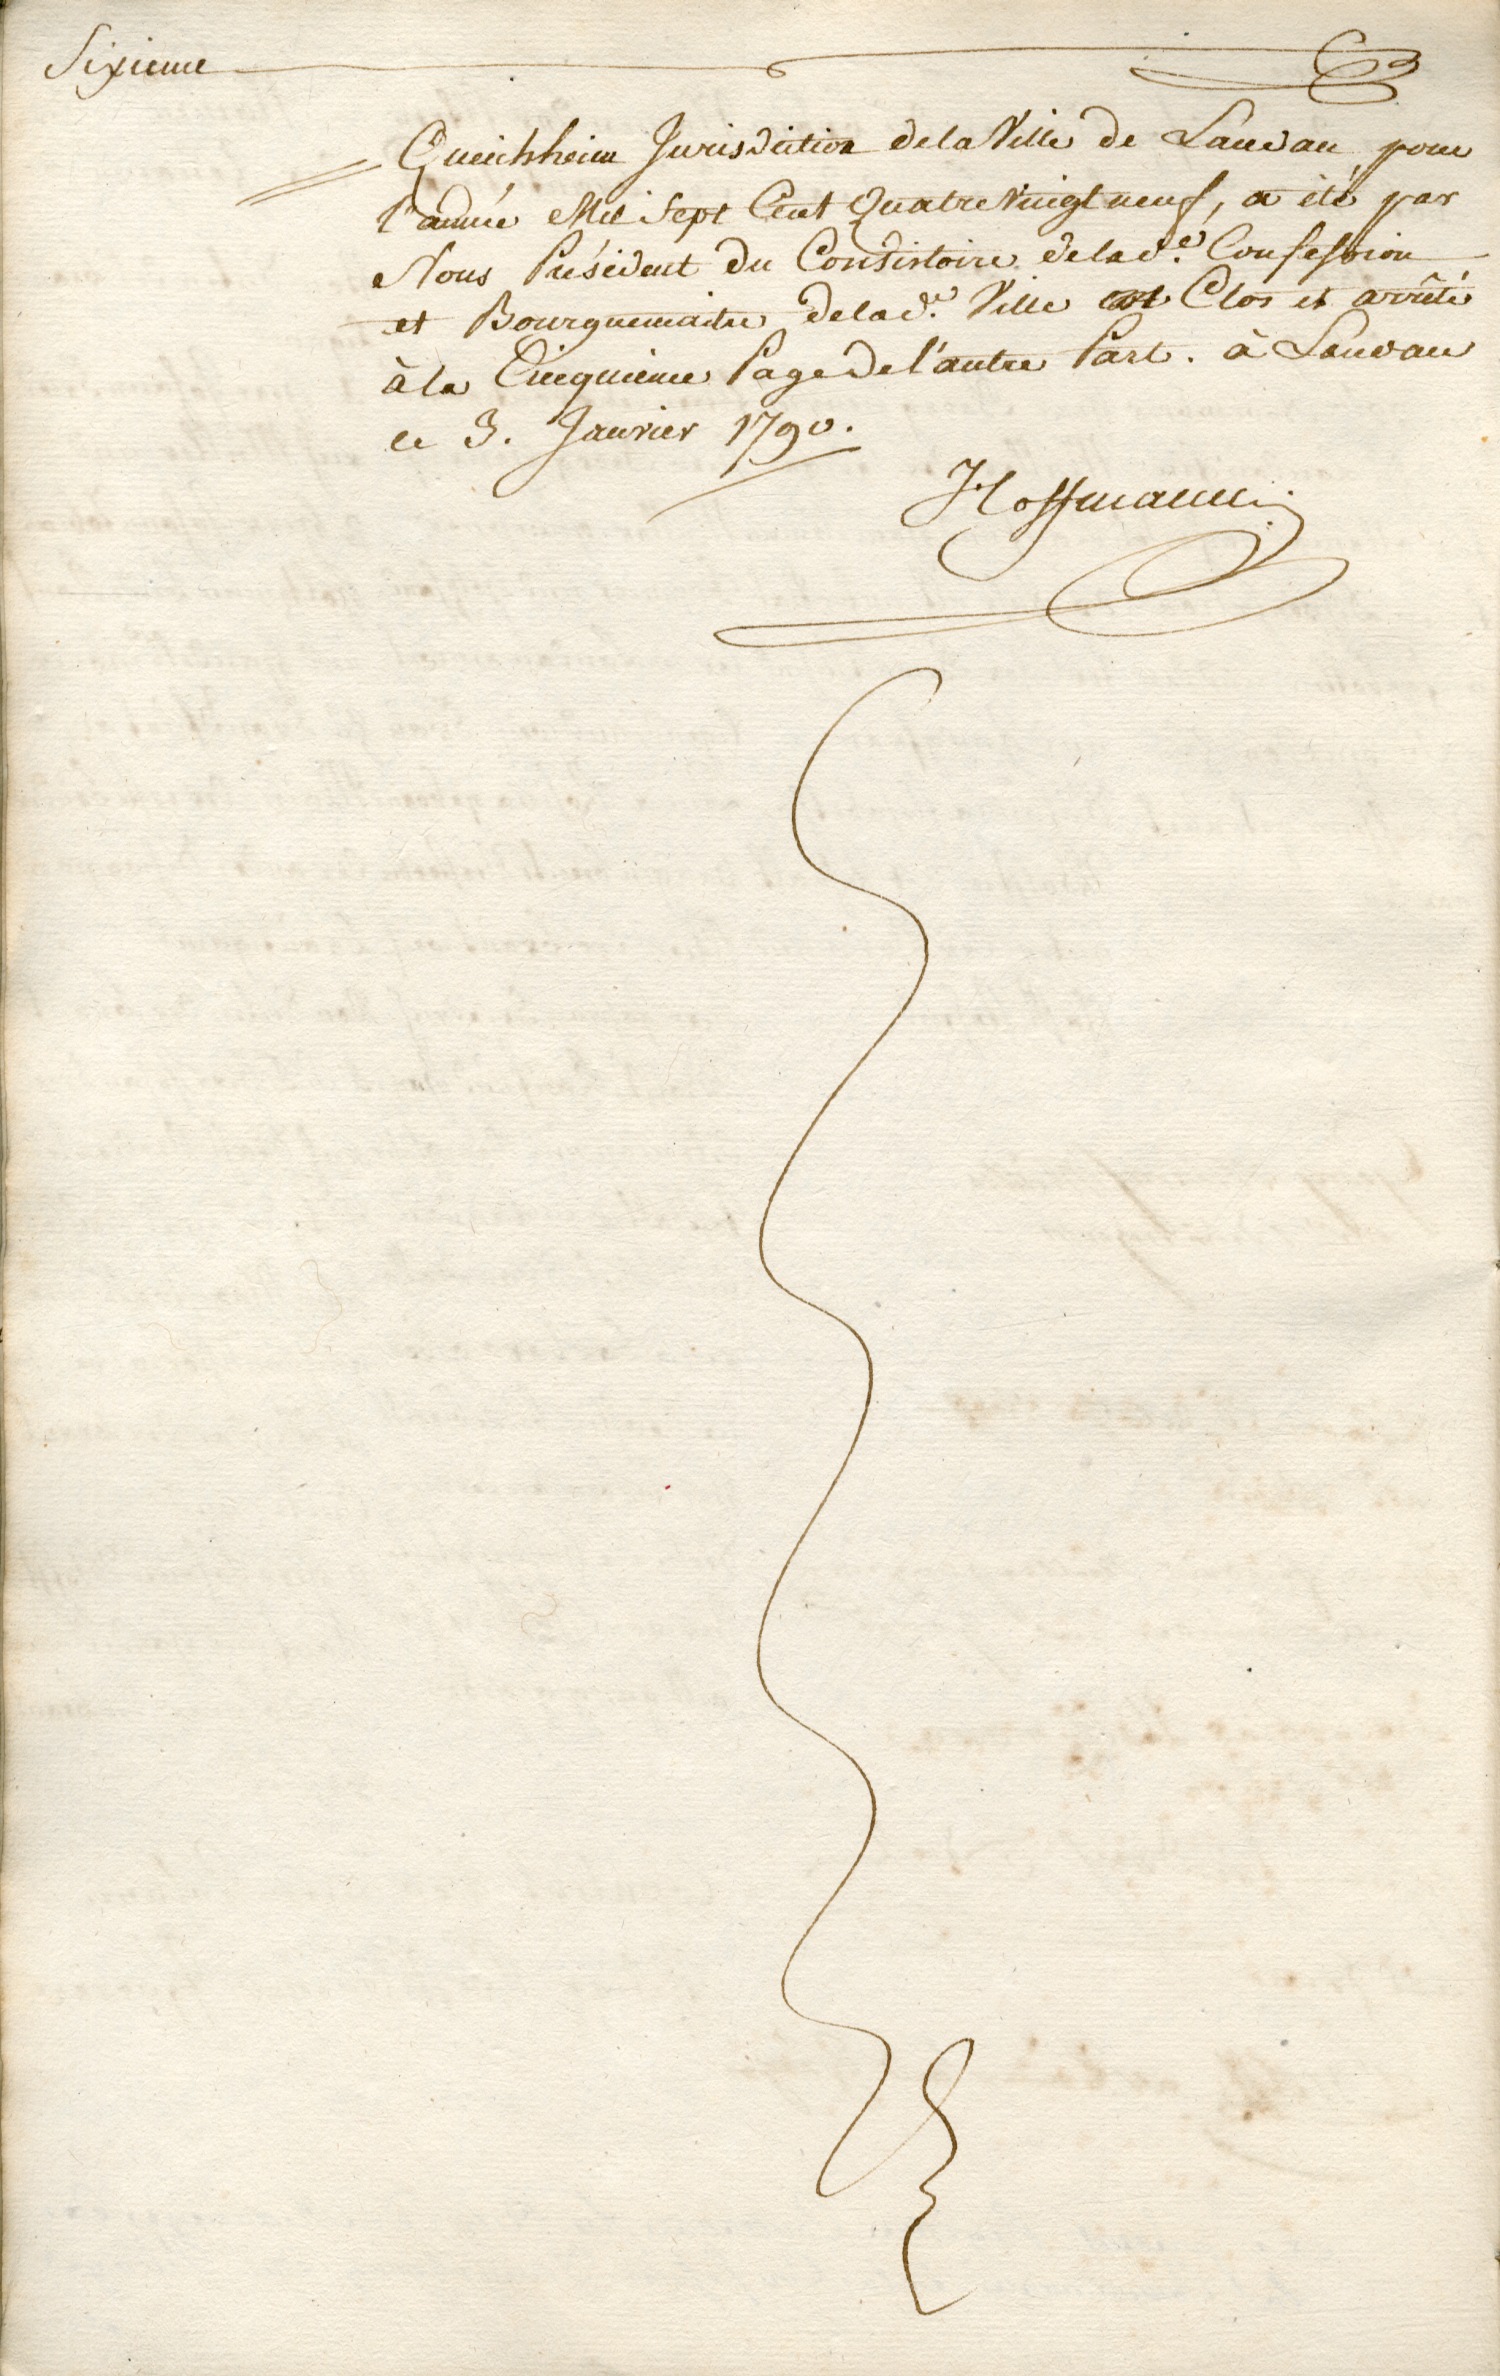 Sixieme
Queichheim Jurisdiction de la Ville de Landau, pour
l'année Mil Sept Cent Quatre Vingt neuf, a été par
Nous Président du Consistoire de lad.e Confession
et Bourguemaitre de lad.e Ville Clos et arrêté
à la Cinquieme Page de l'autre Part. à Landau
ce 3. Janvier 1790.
Hoffmann